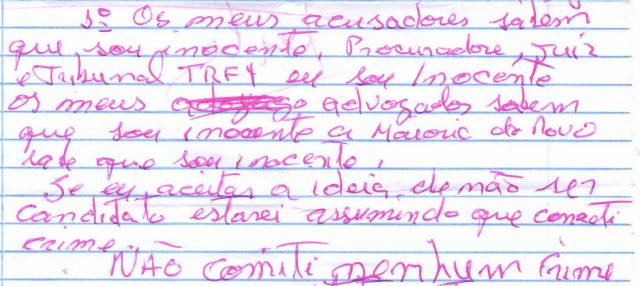 3º Os meus acusadores sabem
que sou inocente, Procuradore, Juiz
e Tribunal TRF4 eu sou Inocente
os meus advogados sabem
que sou inocente a Maioria do Povo
sabe que sou inocente,
Se eu aceitar a ideia de não ser
candidato estarei assumindo que cometi
crime.
NÃO comiti nenhum crime